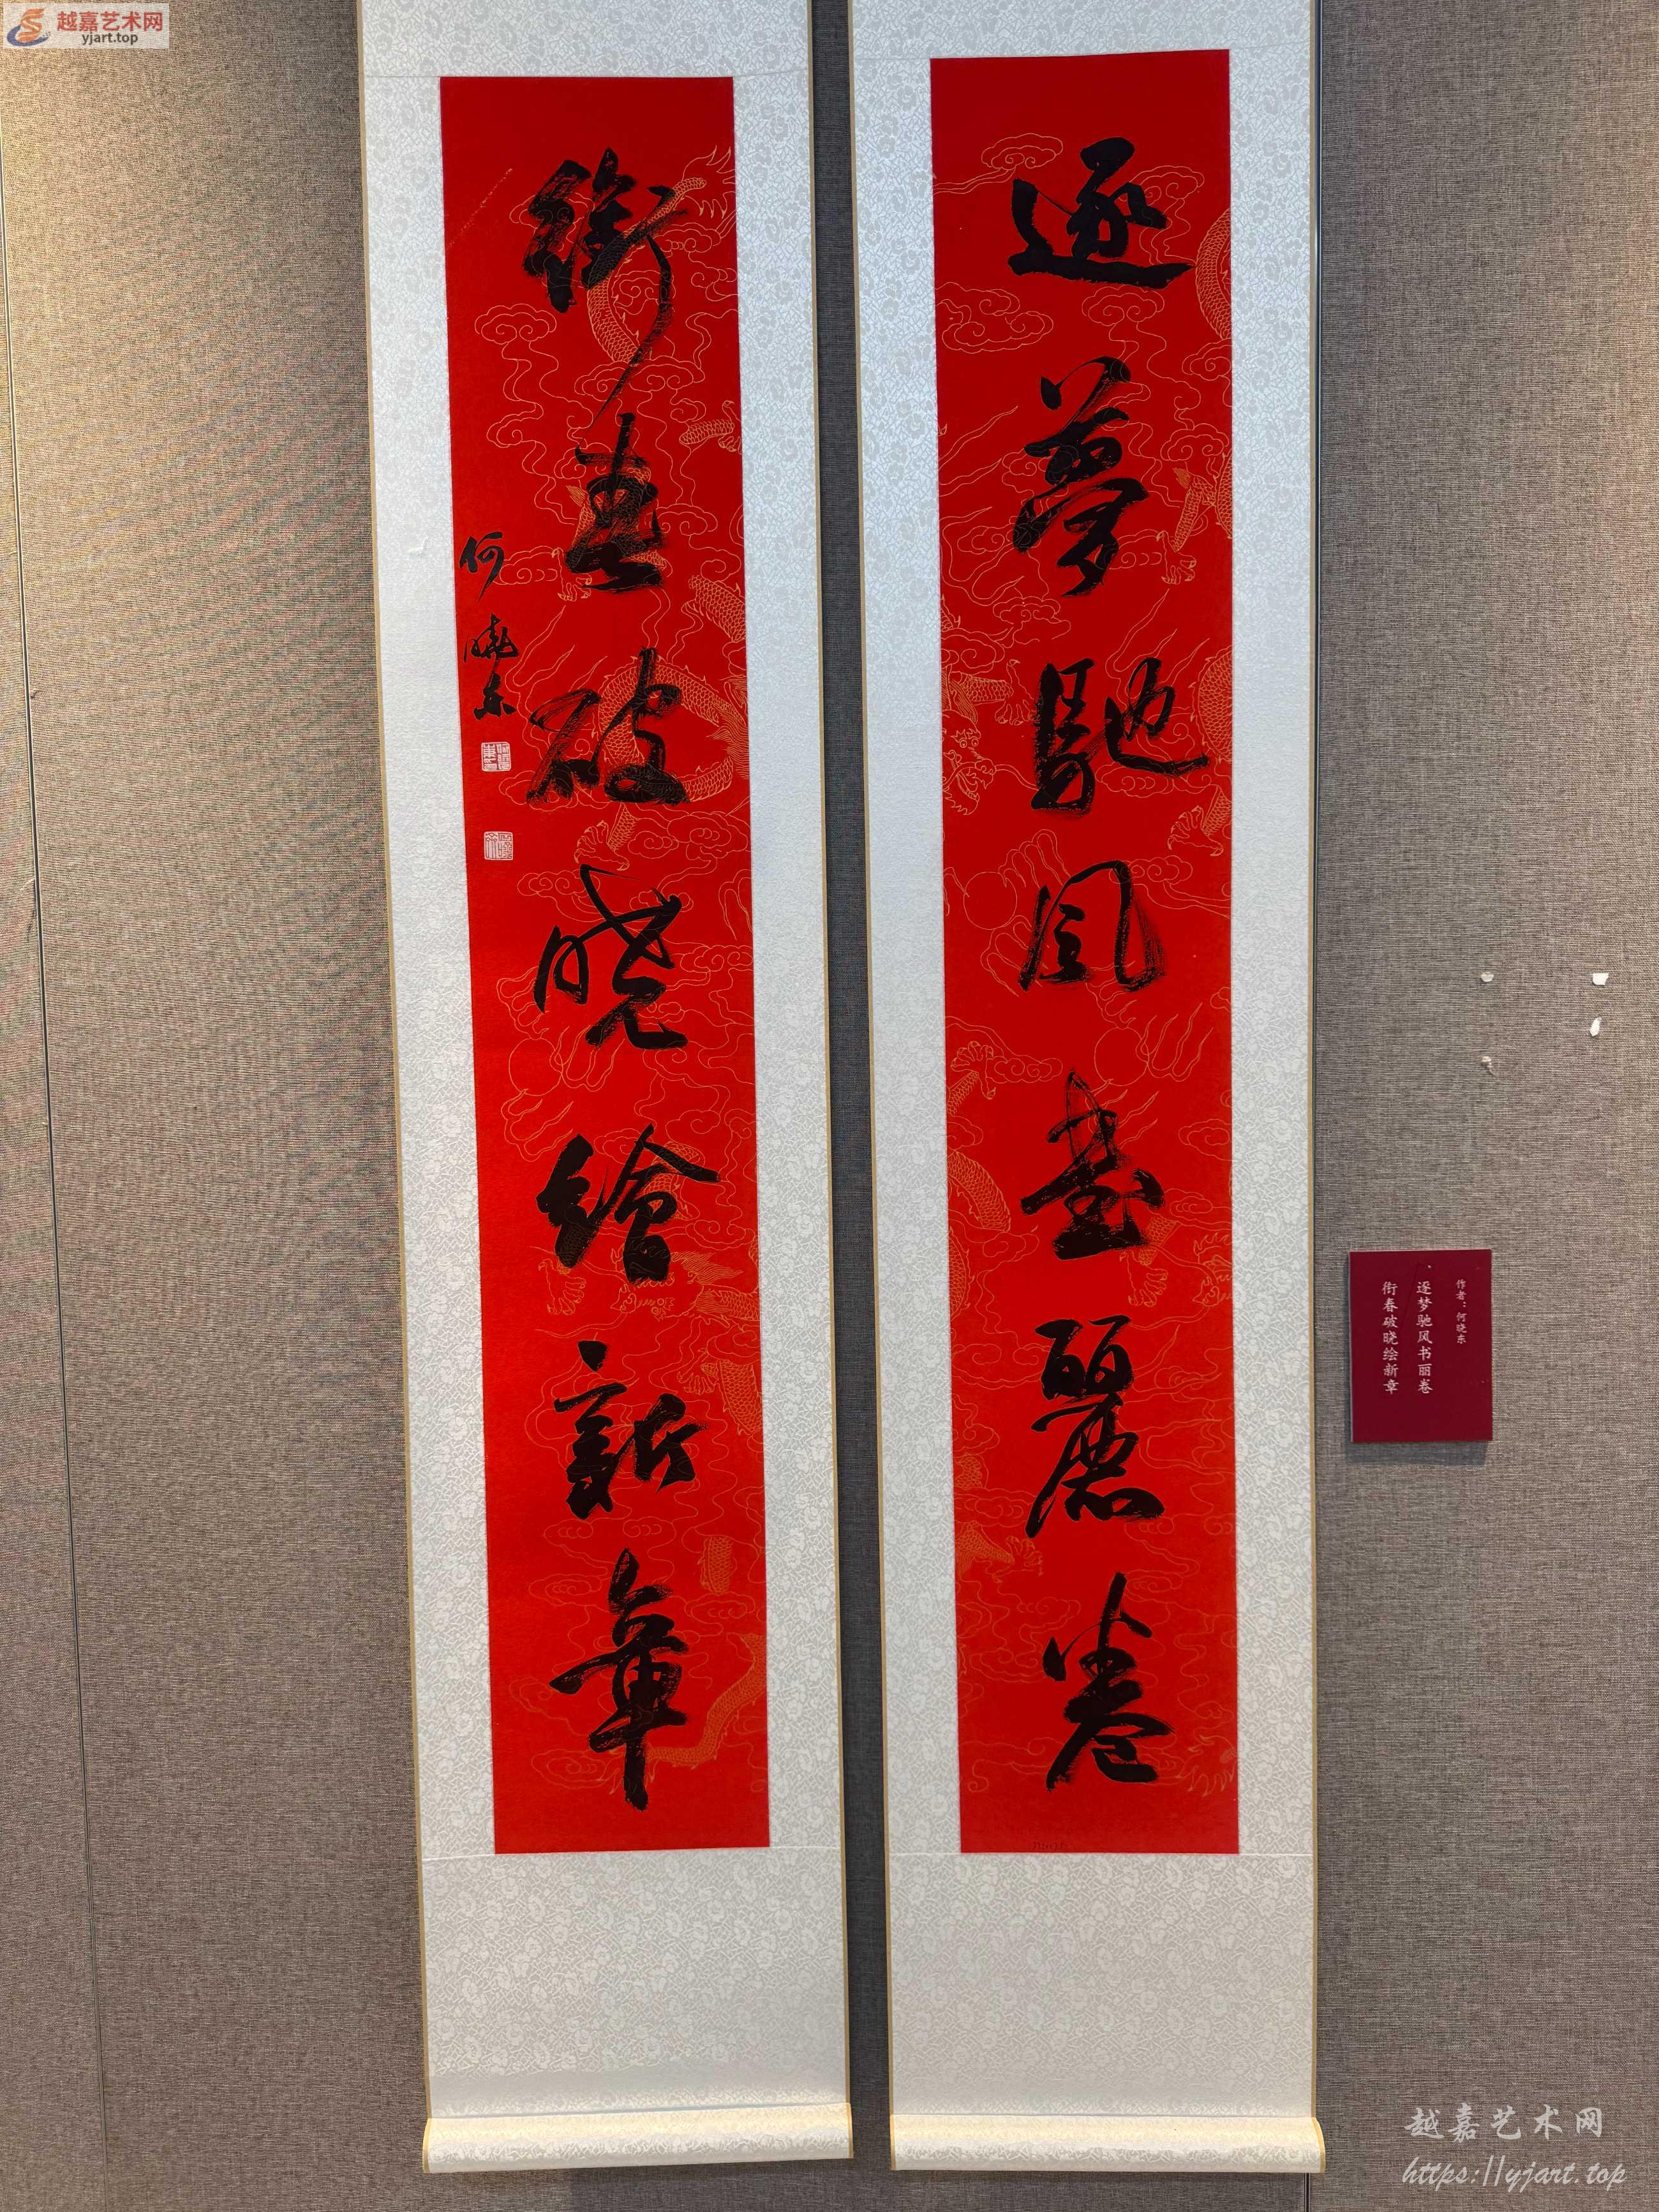 越嘉艺术网
yjart.top
逐夢馳風書麗卷
銜春破曉繪新章
何曉东
作者：何晓东
逐梦驰风书丽卷
衔春破晓绘新章
越嘉艺术网
https://yjart.top